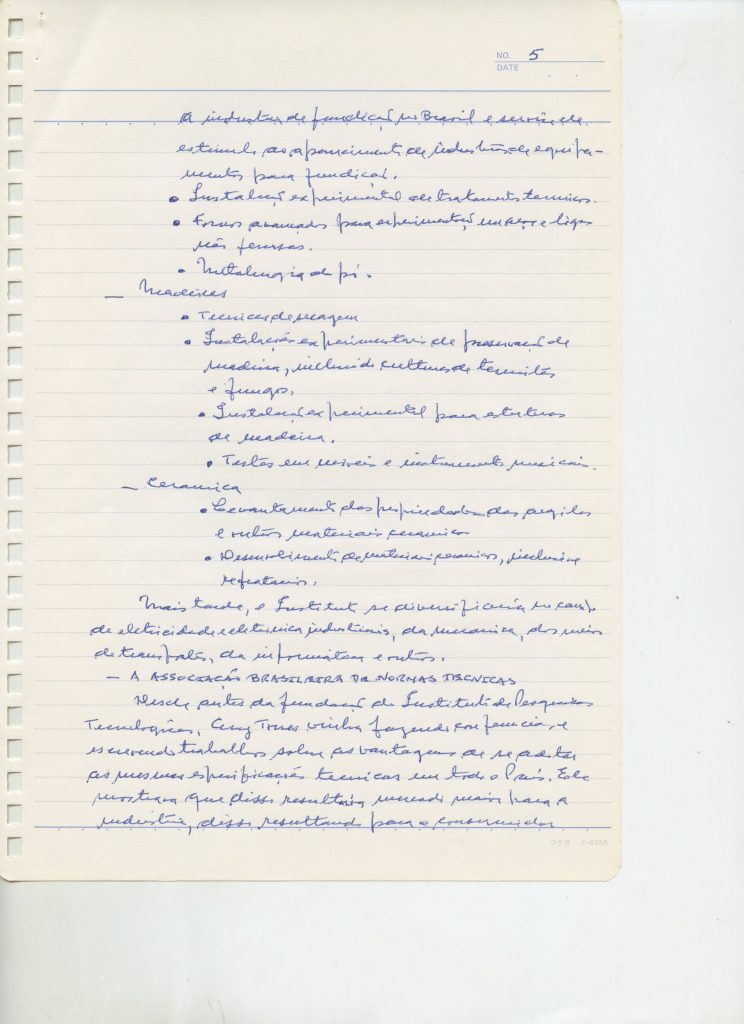 NO. 5
DATE
a industria de fundição no Brasil e serviu de
estimulo ao aparecimento de industrias de equipa-
mentos para fundição.
• Instalação experimental de tratamentos termicos.
• Fornos avançados para experimentação em aço e ligas
não ferrosas.
• Metalurgia do pó.
— Madeiras
• Tecnicas de secagem
• Instalações experimentais de preservação de
madeira, incluindo culturas de termitas
e fungos.
• Instalação experimental para estruturas
de madeira.
• Testes em moveis e instrumentos musicais.
— Ceramica
• Levantamento das propriedades das argilas
e outros materiais ceramicos
• Desenvolvimento de materiais ceramicos, inclusive
refratarios.
Mais tarde, o Instituto se diversificaria no campo
de eletricidade e eletronica industriais, da mecanica, dos meios
de transporte, da informatica e outros.
— A ASSOCIAÇÃO BRASILEIRA DE NORMAS TECNICAS
Desde antes da fundação do Instituto de Pesquisas
Tecnologicas, Ary Torres vinha fazendo conferencias e
escrevendo trabalhos sobre as vantagens de se adotar
as mesmas especificações tecnicas em todo o País. Ele
mostrava que disso resultaria mercado maior para a
industria, disso resultando para o consumidor